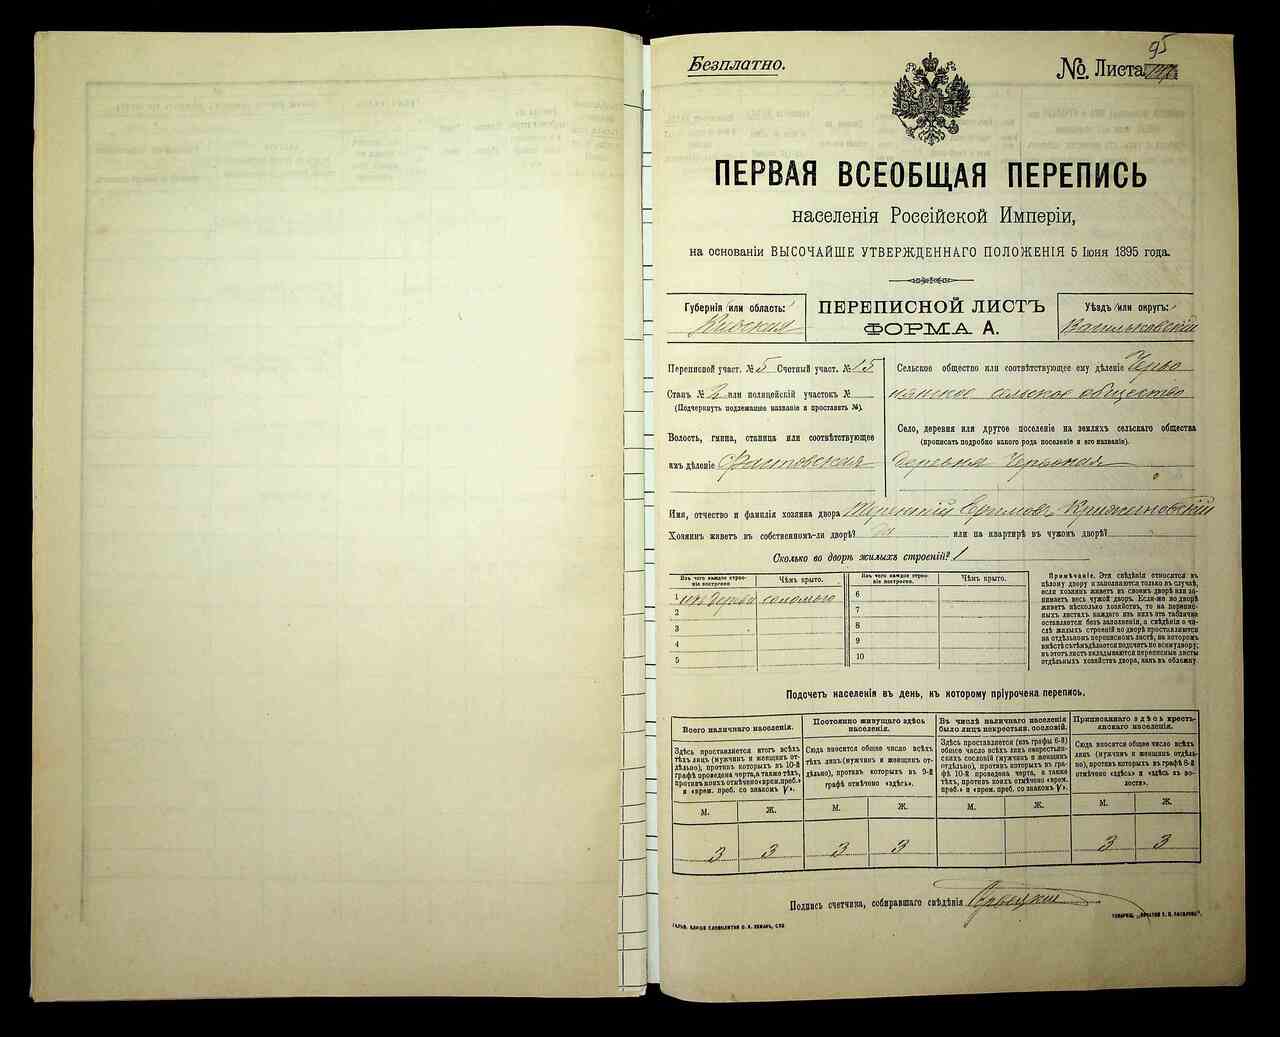 Безплатно.
№ Листа 95
ПЕРВАЯ ВСЕОБЩАЯ ПЕРЕПИСЬ
населенія Россійской Имперіи,
на основаніи ВЫСОЧАЙШЕ УТВЕРЖДЕННАГО ПОЛОЖЕНІЯ 5 Іюня 1895 года.
Губернія или область:
Кіевская
ПЕРЕПИСНОЙ ЛИСТЪ
ФОРМА А.
Уѣздъ или округъ:
Васильковскій
Переписной участ. № 5 Счетный участ. № 15
Станъ № 2 или полицейскій участокъ №
(Подчеркнуть подлежащее названіе и проставить №).
Волость, гмина, станица или соотвѣтствующее
имъ дѣленіе Фастовская
Сельское общество или соотвѣтствующее ему дѣленіе Черво
нянское сельское общество
Село, деревня или другое поселеніе на земляхъ сельскаго общества
(прописать подробно какого рода поселеніе и его названіе).
деревня Червоная
Имя, отчество и фамилія хозяина двора Терентій Ефимовъ Крижановскій
Хозяинъ живетъ въ собственномъ-ли дворѣ? да или на квартирѣ въ чужомъ дворѣ?
Сколько во дворѣ жилыхъ строеній? 1
Изъ чего каждое строе-
ніе построено.
Чѣмъ крыто.
Изъ чего каждое строе-
ніе построено.
Чѣмъ крыто.
1 изъ дерева соломою
2
3
4
5
6
7
8
9
10
Примѣчаніе. Эти свѣдѣнія относятся къ
цѣлому двору и заполняются только въ случаѣ,
если хозяинъ живетъ въ своемъ дворѣ или за-
нимаетъ весь чужой дворъ. Если-же во дворѣ
живетъ нѣсколько хозяйствъ, то на перепис-
ныхъ листахъ каждаго изъ нихъ эта табличка
оставляется безъ заполненія, а свѣдѣнія о чи-
слѣ жилыхъ строеній во дворѣ проставляются
на отдѣльномъ переписномъ листѣ, на которомъ
вмѣстѣ съ тѣмъ дѣлается подсчетъ по всему двору;
въ этотъ листъ вкладываются переписные листы
отдѣльныхъ хозяйствъ двора, какъ въ обложку.
Подсчетъ населенія въ день, къ которому пріурочена перепись.
Всего наличнаго населенія.
Здѣсь проставляется итогъ всѣхъ
тѣхъ лицъ (мужчинъ и женщинъ от-
дѣльно), противъ которыхъ въ 10-й
графѣ проведена черта, а также тѣхъ,
противъ коихъ отмѣчено «врем. преб.»
и «врем. преб. со знакомъ V».
М. Ж.
3 3
Постоянно живущаго здѣсь
населенія.
Сюда вносится общее число всѣхъ
тѣхъ лицъ (мужчинъ и женщинъ от-
дѣльно), противъ которыхъ въ 9-й
графѣ отмѣчено «здѣсь».
М. Ж.
3 3
Въ числѣ наличнаго населенія
было лицъ некрестьян. сословій.
Здѣсь проставляется (изъ графы 6-й)
общее число всѣхъ лицъ некрестьян-
скихъ сословій (мужчинъ и женщинъ
отдѣльно), противъ которыхъ въ гра-
фѣ 10-й проведена черта, а также
тѣхъ, противъ коихъ отмѣчено «врем.
преб.» и «врем. преб. со знакомъ V».
М. Ж.
Приписаннаго здѣсь кресть-
янскаго населенія.
Сюда вносится общее число всѣхъ
лицъ (мужчинъ и женщинъ отдѣль-
но), противъ которыхъ въ графѣ 8-й
отмѣчено «здѣсь» и «здѣсь въ во-
лости».
М. Ж.
3 3
Подпись счетчика, собиравшаго свѣдѣнія